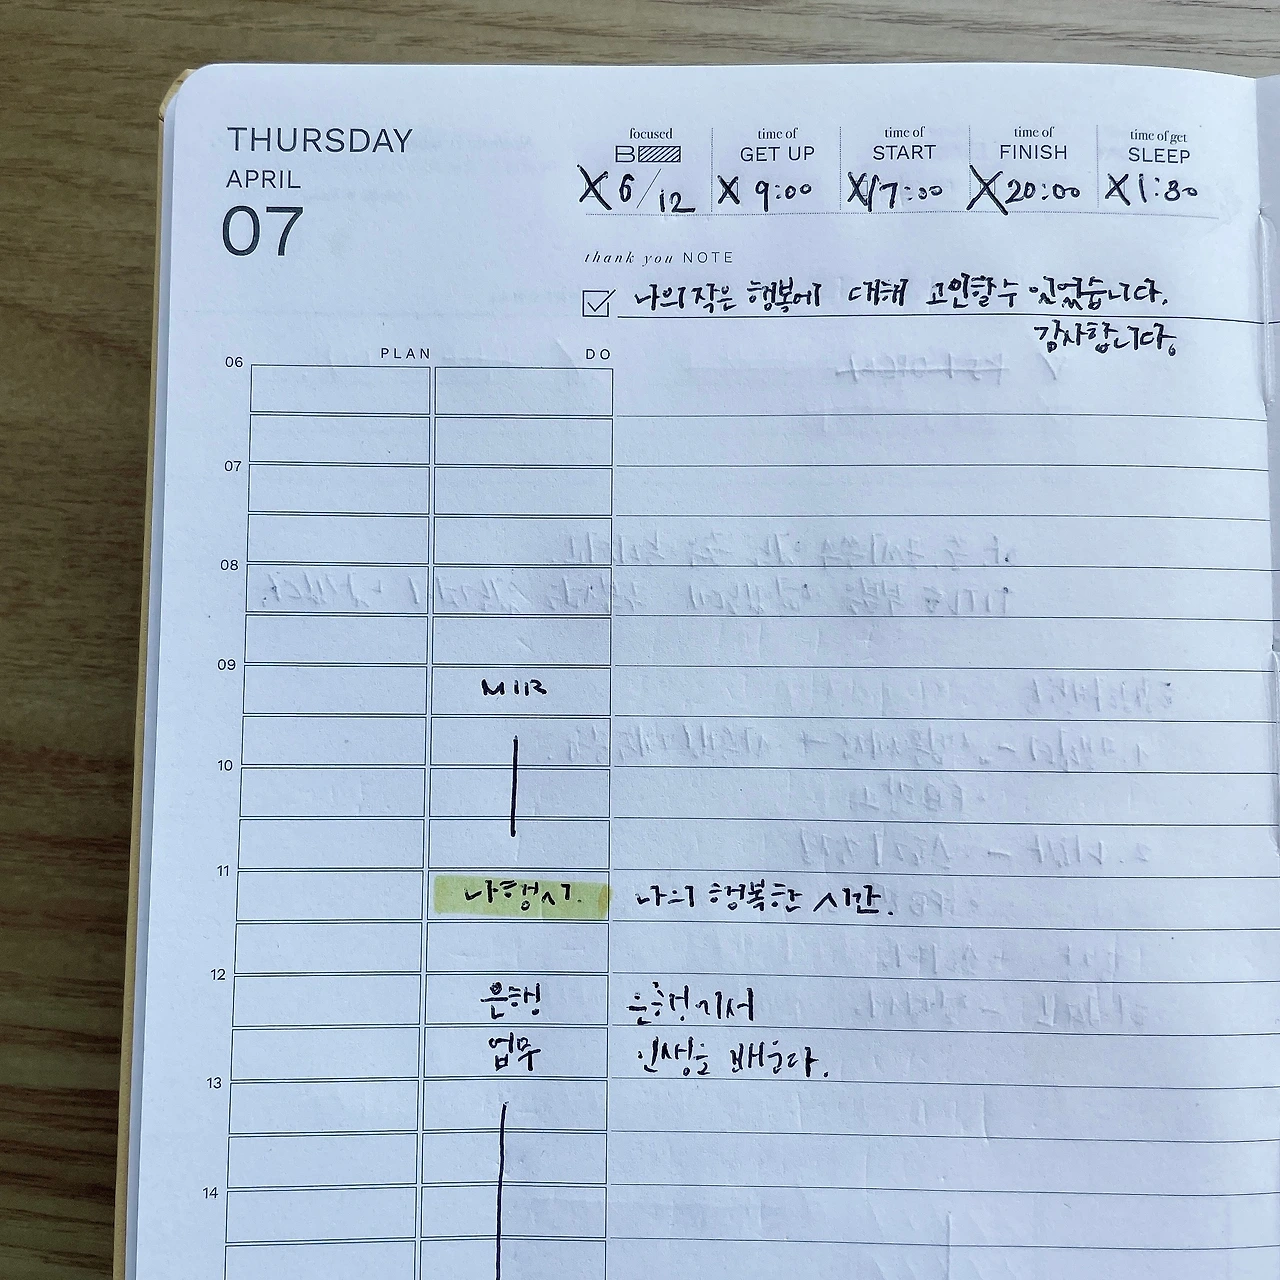 THURSDAY
APRIL
07
focused
B
X 6/12
time of
GET UP
X 9:00
time of
START
X 17:00
time of
FINISH
X 20:00
time of get
SLEEP
X 1:30
thank you NOTE
나의 작은 행복에 대해 고민할 수 있었습니다.
감사합니다.
PLAN DO
06
07
08
09
10
11
나행시. 나의 행복한 시간.
12
은행 은행가서
업무 인생을 배운다.
13
14